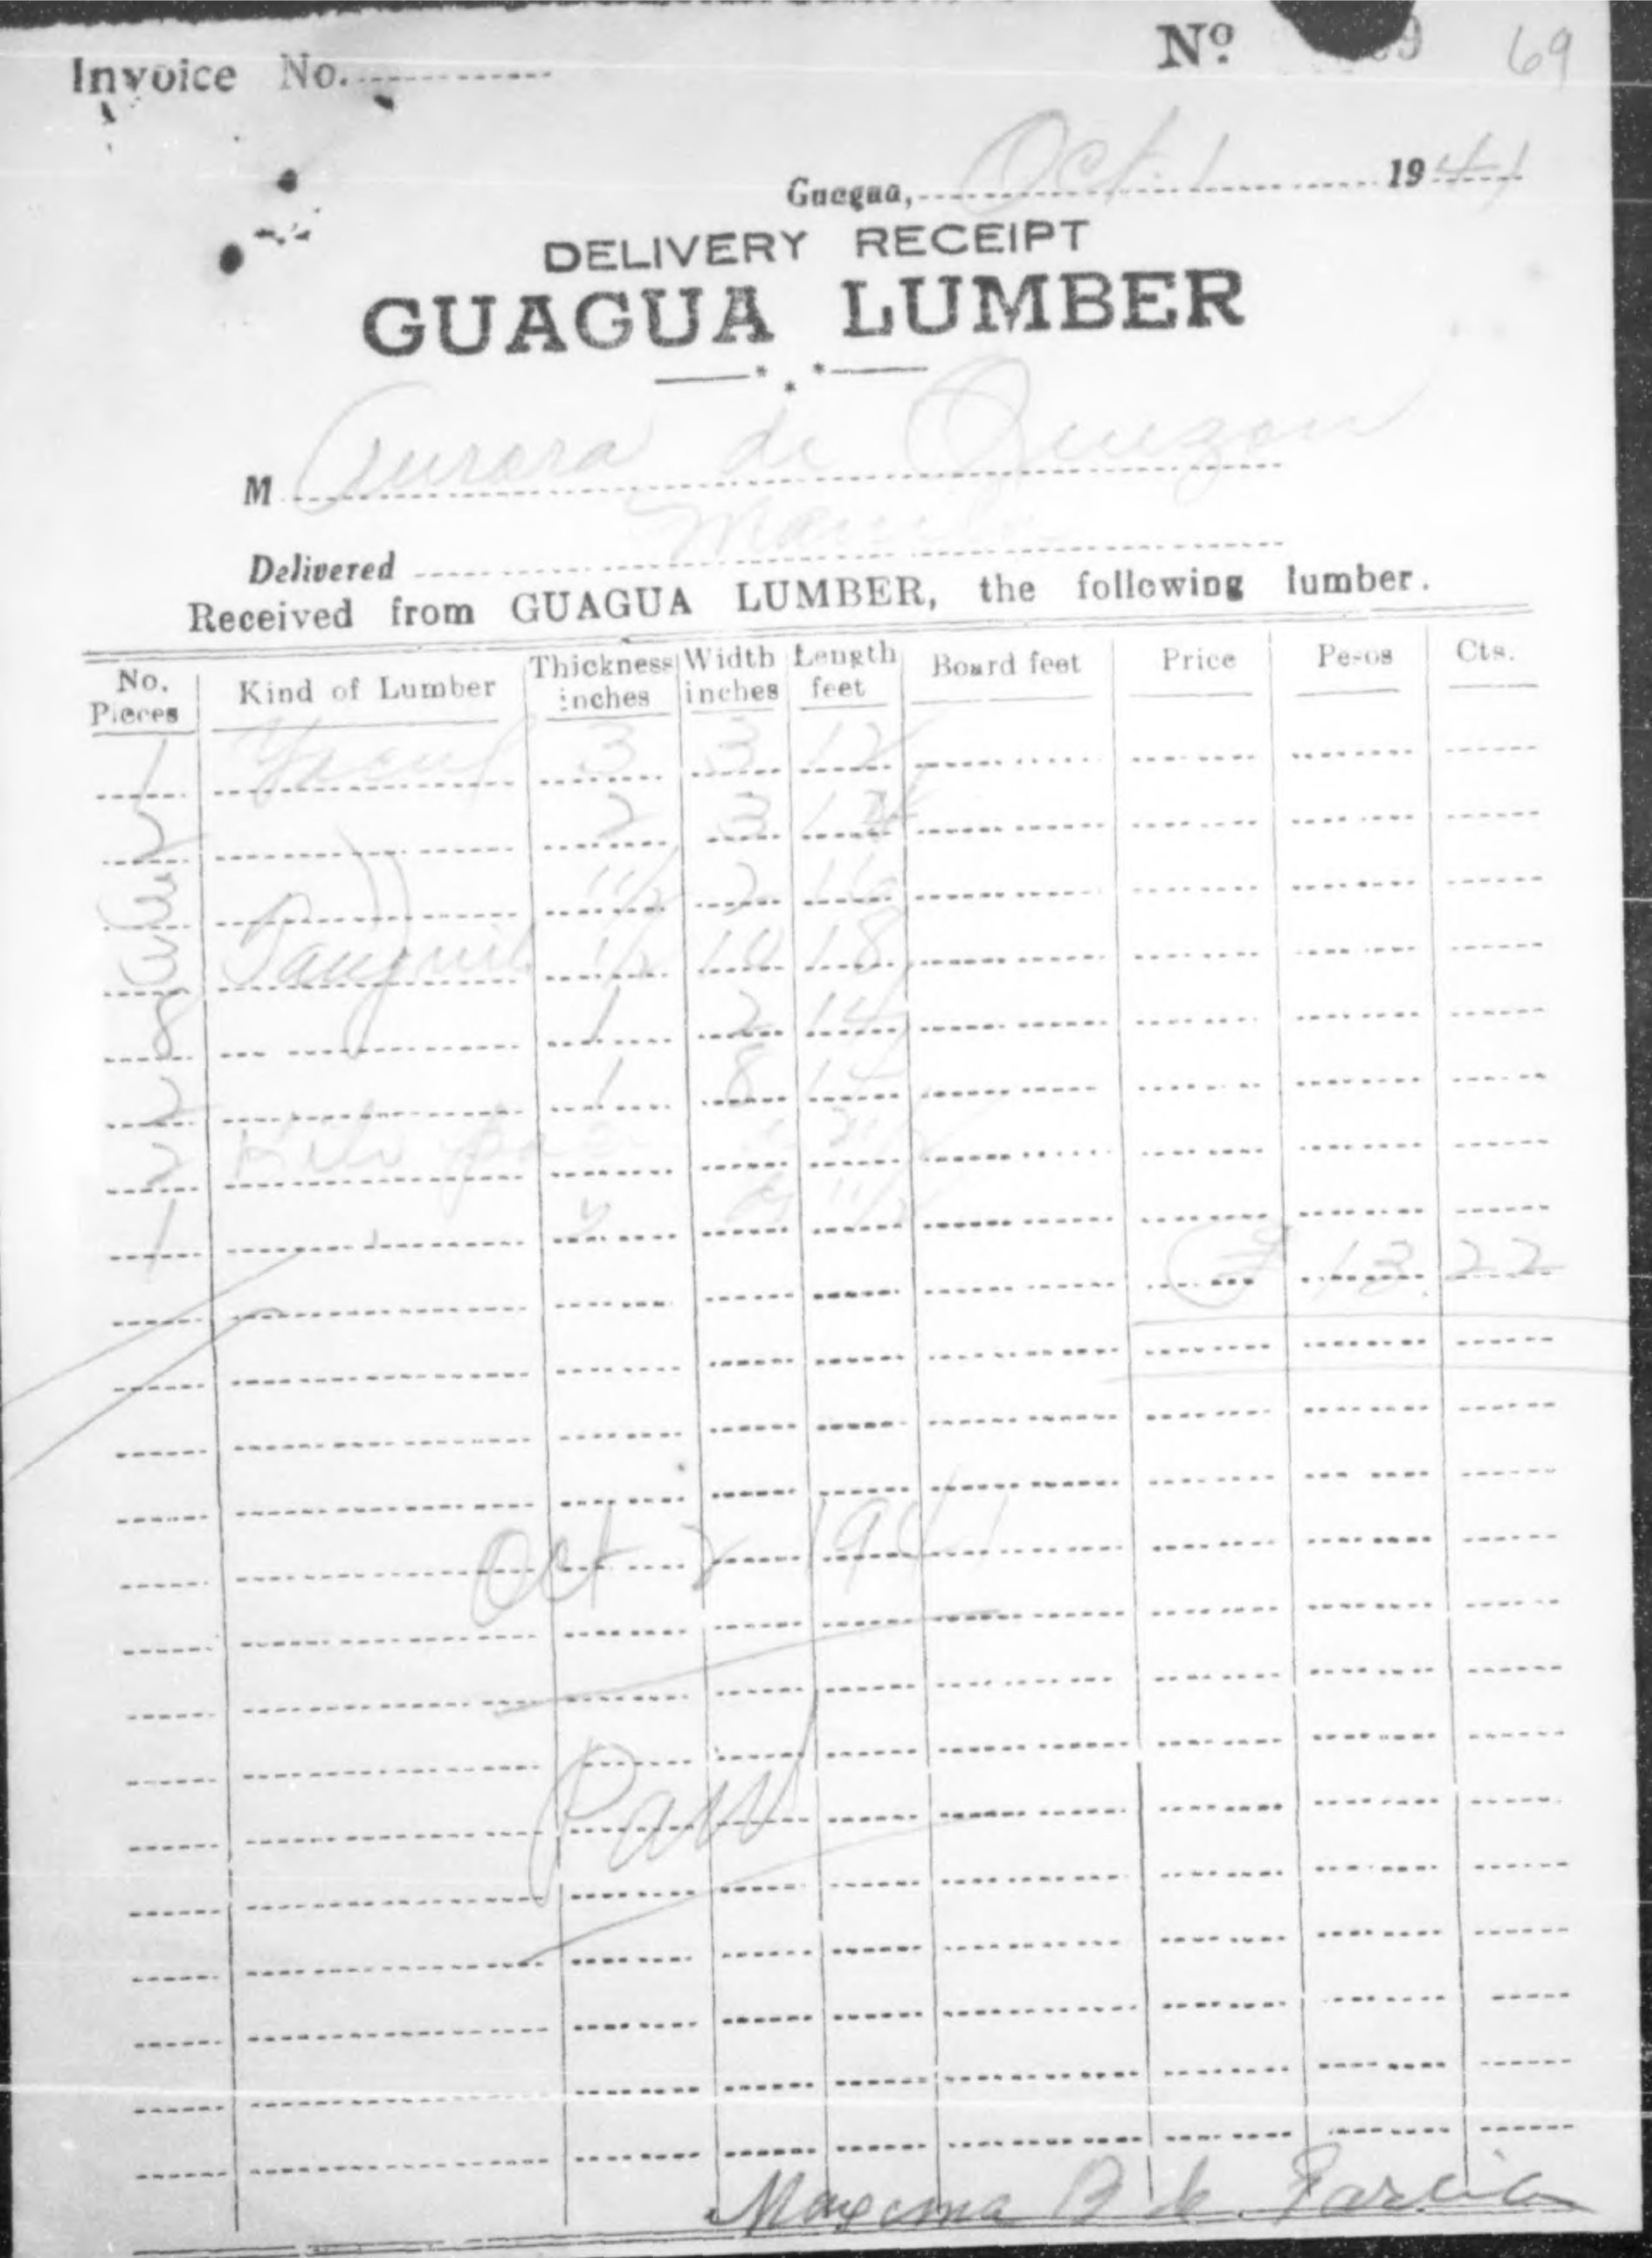 Invoice No.
Nº 9 69
Guagua, Oct. 1 1941
DELIVERY RECEIPT
GUAGUA LUMBER
M Aurora de Quezon
Delivered
Received from GUAGUA LUMBER, the following lumber.
No. Pieces Kind of Lumber Thickness inches Width inches Length feet Board feet Price Pesos Cts.
1 Yacal 3 3 12
2 2 3 14
1 1/2 2
3 Tanguili 1/2 10 18
8 1 2 14
2 1 8 14
2 Kilo
1
₱ 13 22
Oct 2 1941
Paid
Maxima B de Garcia